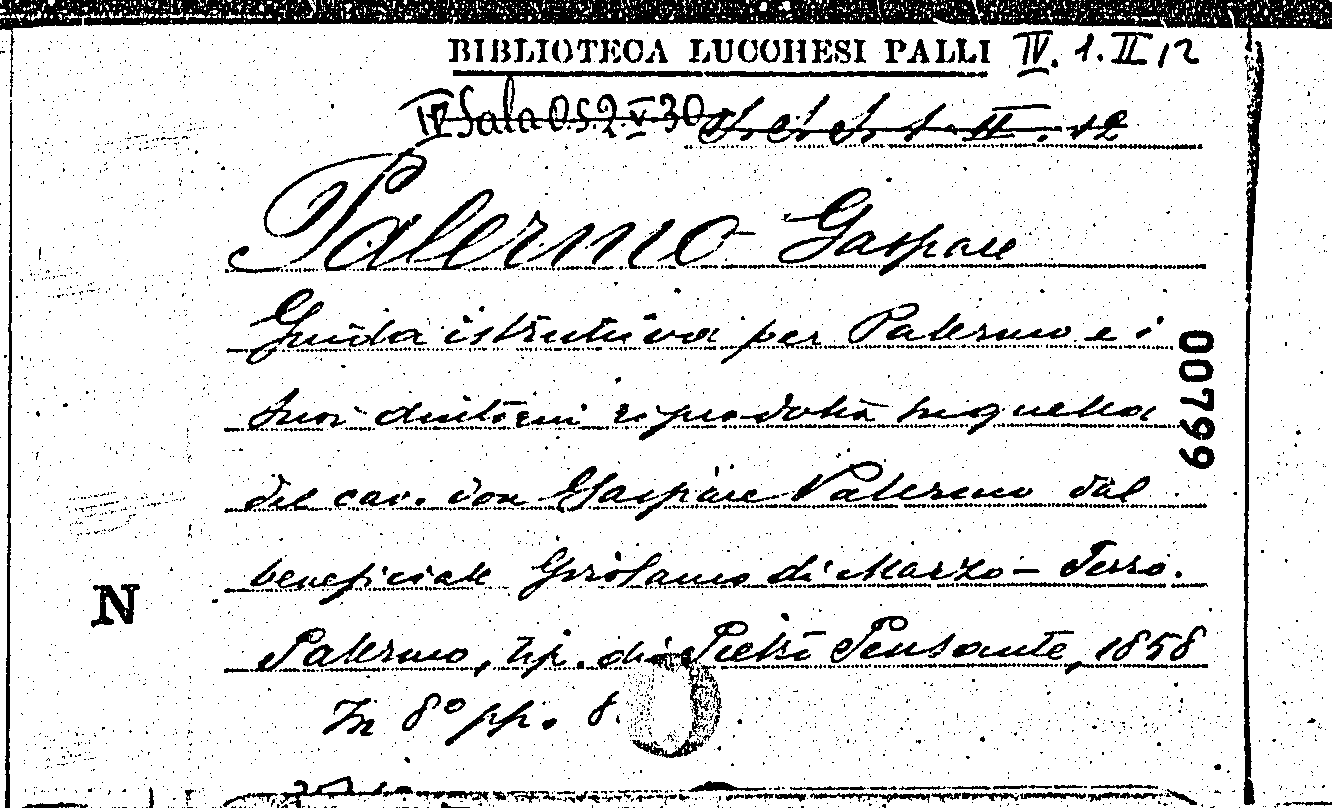 BIBLIOTECA LUCCHESI PALLI IV. 1. II 12
IV Sala 052 V 30 1. II. 12
Palermo Gaspare
Guida istruttiva per Palermo e i
suoi dintorni riprodotta su quella
del cav. don Gaspare Palermo dal
beneficiale Girolamo di Marzo-Ferro.
Palermo, tip. di Pietro Pensante, 1858
In 8° pp. 8.
00799
N